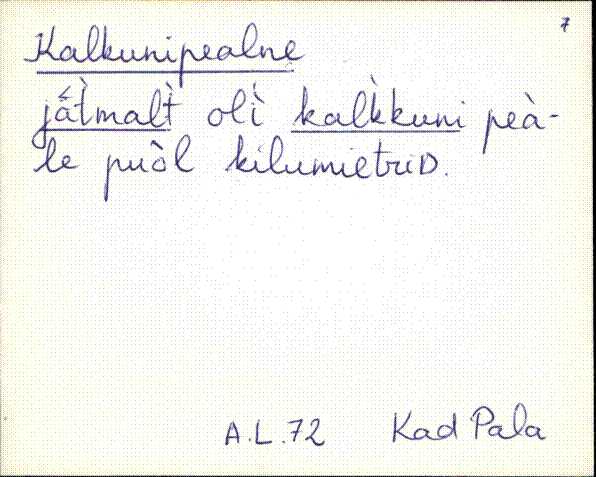 7
Kalkunipealne
jä̀tmalt̀ olì kalk̀kuni peà-
le puòl kilumietriD.
A.L.72 Kad Pala